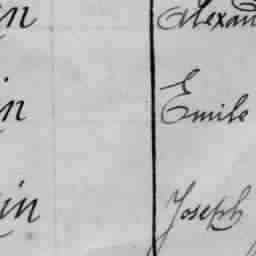 in Alexan
in Emile
in Joseph